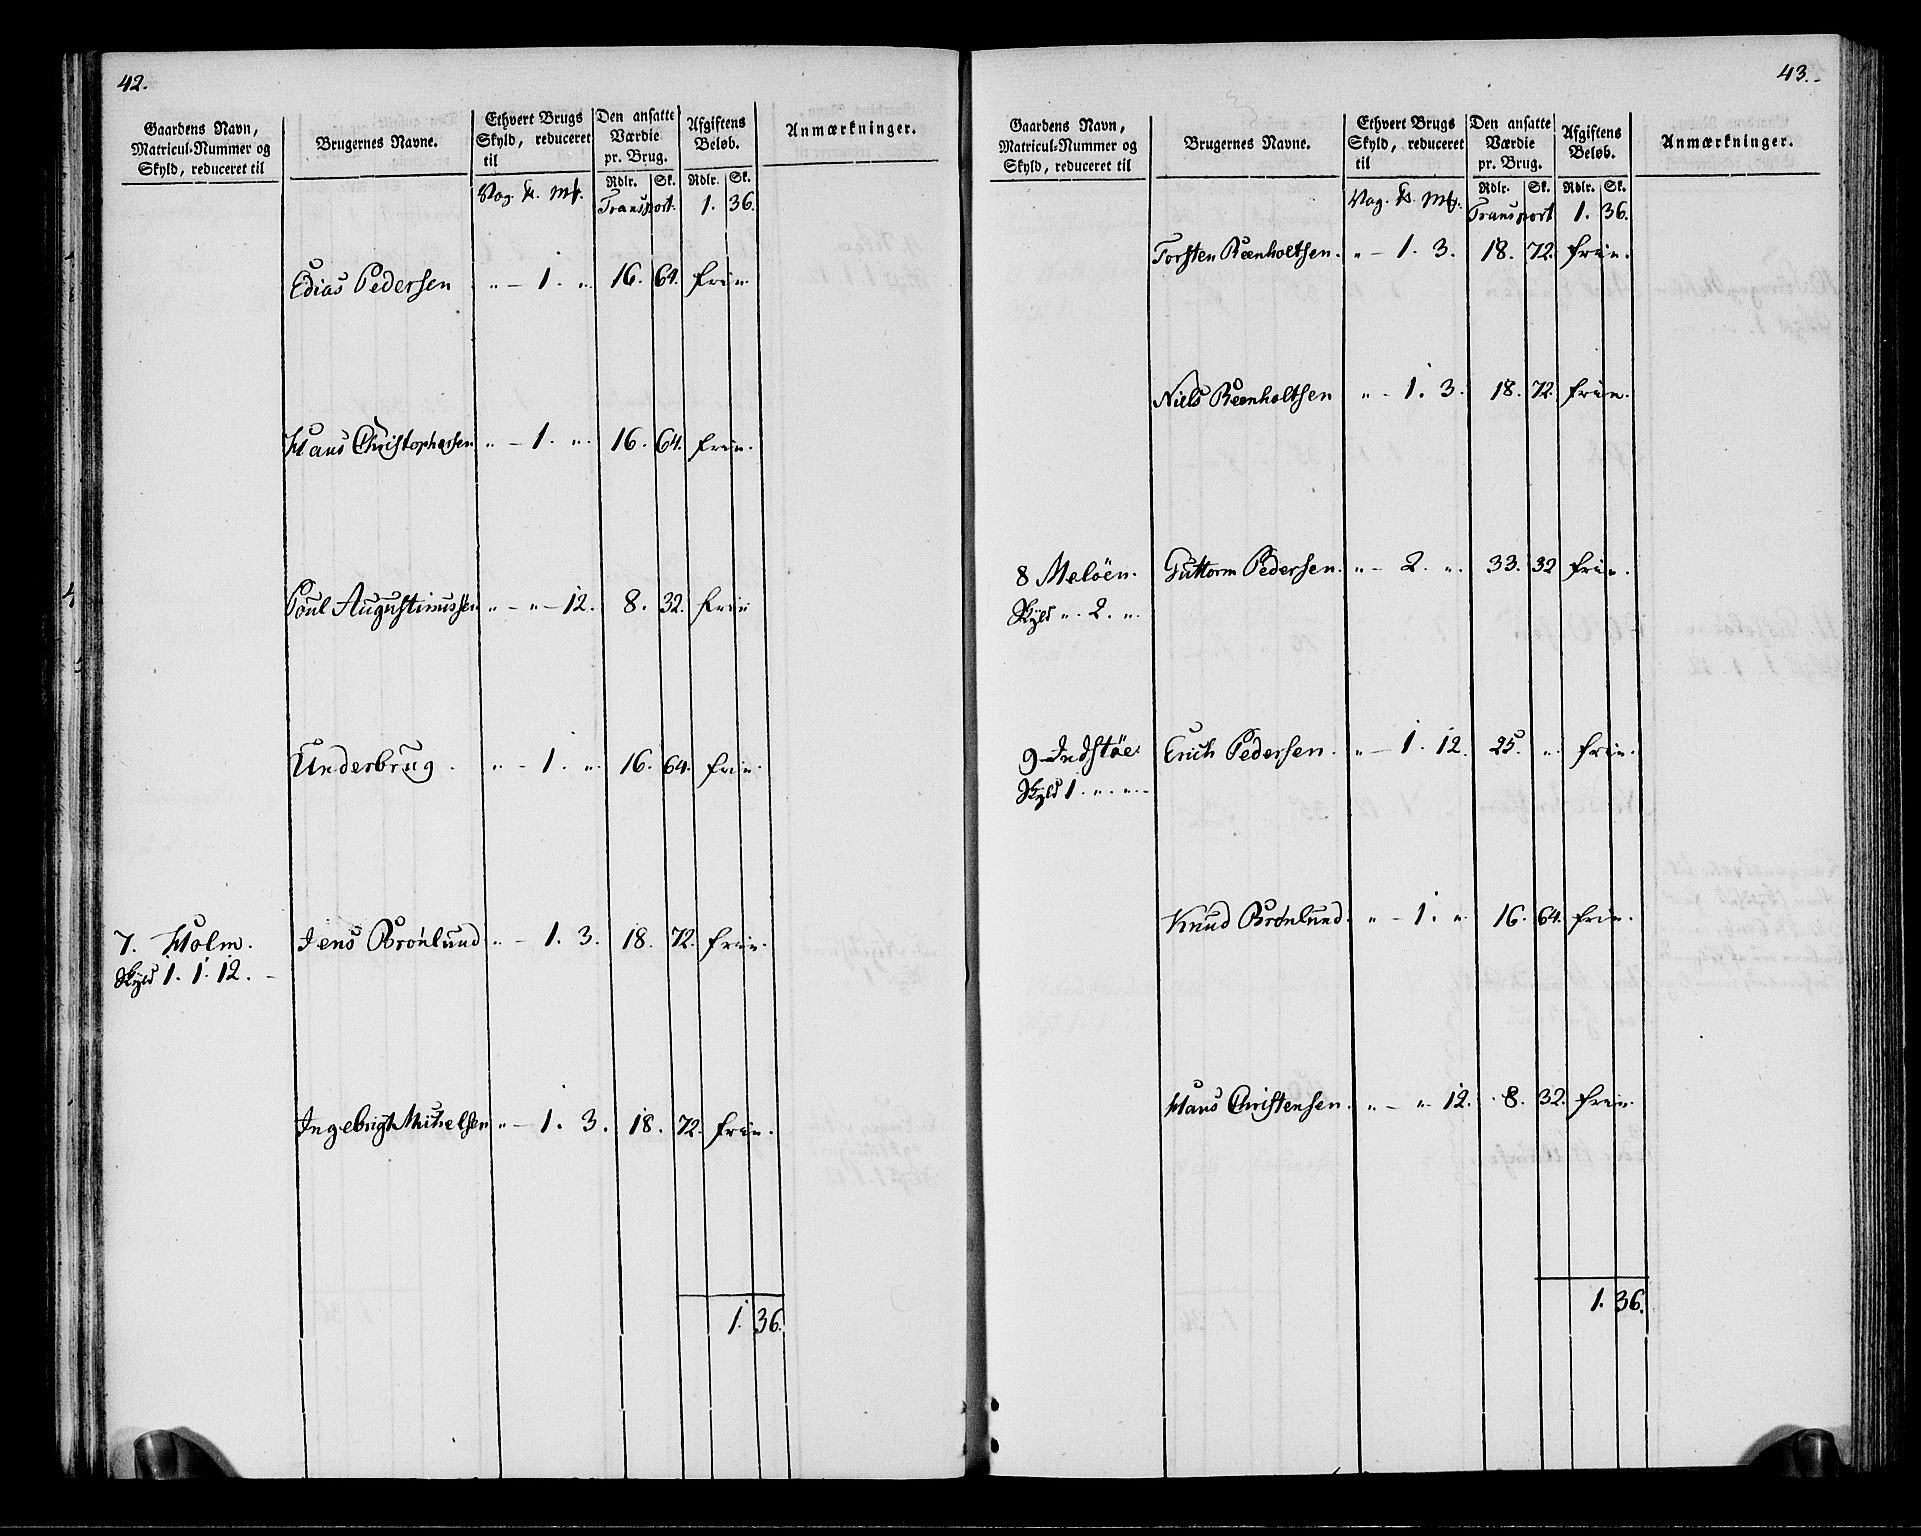 42.
Gaardens Navn, Matricul-Nummer og Skyld, reduceret til | Brugernes Navne. | Ethvert Brugs Skyld, reduceret til | Den ansatte Værdie pr. Brug. | Afgiftens Beløb. | Anmærkninger.
Vog. P. Mk. | Rdlr. | Sk. | Rdlr. | Sk.
Transport. | 1. | 36.
Edias Pedersen | " – 1. " | 16. | 64. | frie.
Hans Christophersen | " – 1. ". | 16. | 64. | frie.
Poul Augustinussen | " – " – 12. | 8. | 32. | frie
Underbrug . | " – 1. ". | 16. | 64. | frie.
7. Holm. | Jens Brönlund | " – 1. 3. | 18. | 72. | frie.
Skyld 1. 1. 12. –
Ingebrigt Michelsen | " – 1. 3. | 18. | 72. | frie.
1. | 36.
43.
Gaardens Navn, Matricul-Nummer og Skyld, reduceret til | Brugernes Navne. | Ethvert Brugs Skyld, reduceret til | Den ansatte Værdie pr. Brug. | Afgiftens Beløb. | Anmærkninger.
Vog. P. Mk. | Rdlr. | Sk. | Rdlr. | Sk.
Transport | 1. | 36.
Torsten Reenholtsen. | " – 1. 3. | 18. | 72. | frie.
Niels Reenholtsen | " – 1. 3. | 18. | 72. | frie.
8 Melöen. | Guttorm Pedersen. | " – 2. ". | 33. | 32 | frie.
Skyld ". 2. ".
9 Indstöe. | Erich Pedersen. | " – 1. 12. | 25. | ". | frie.
Skyld 1. ". ". –
Knud Brönlund. | " – 1. ". | 16. | 64. | frie.
Hans Christensen. | " – " 12. | 8. | 32. | frie.
1. | 36.